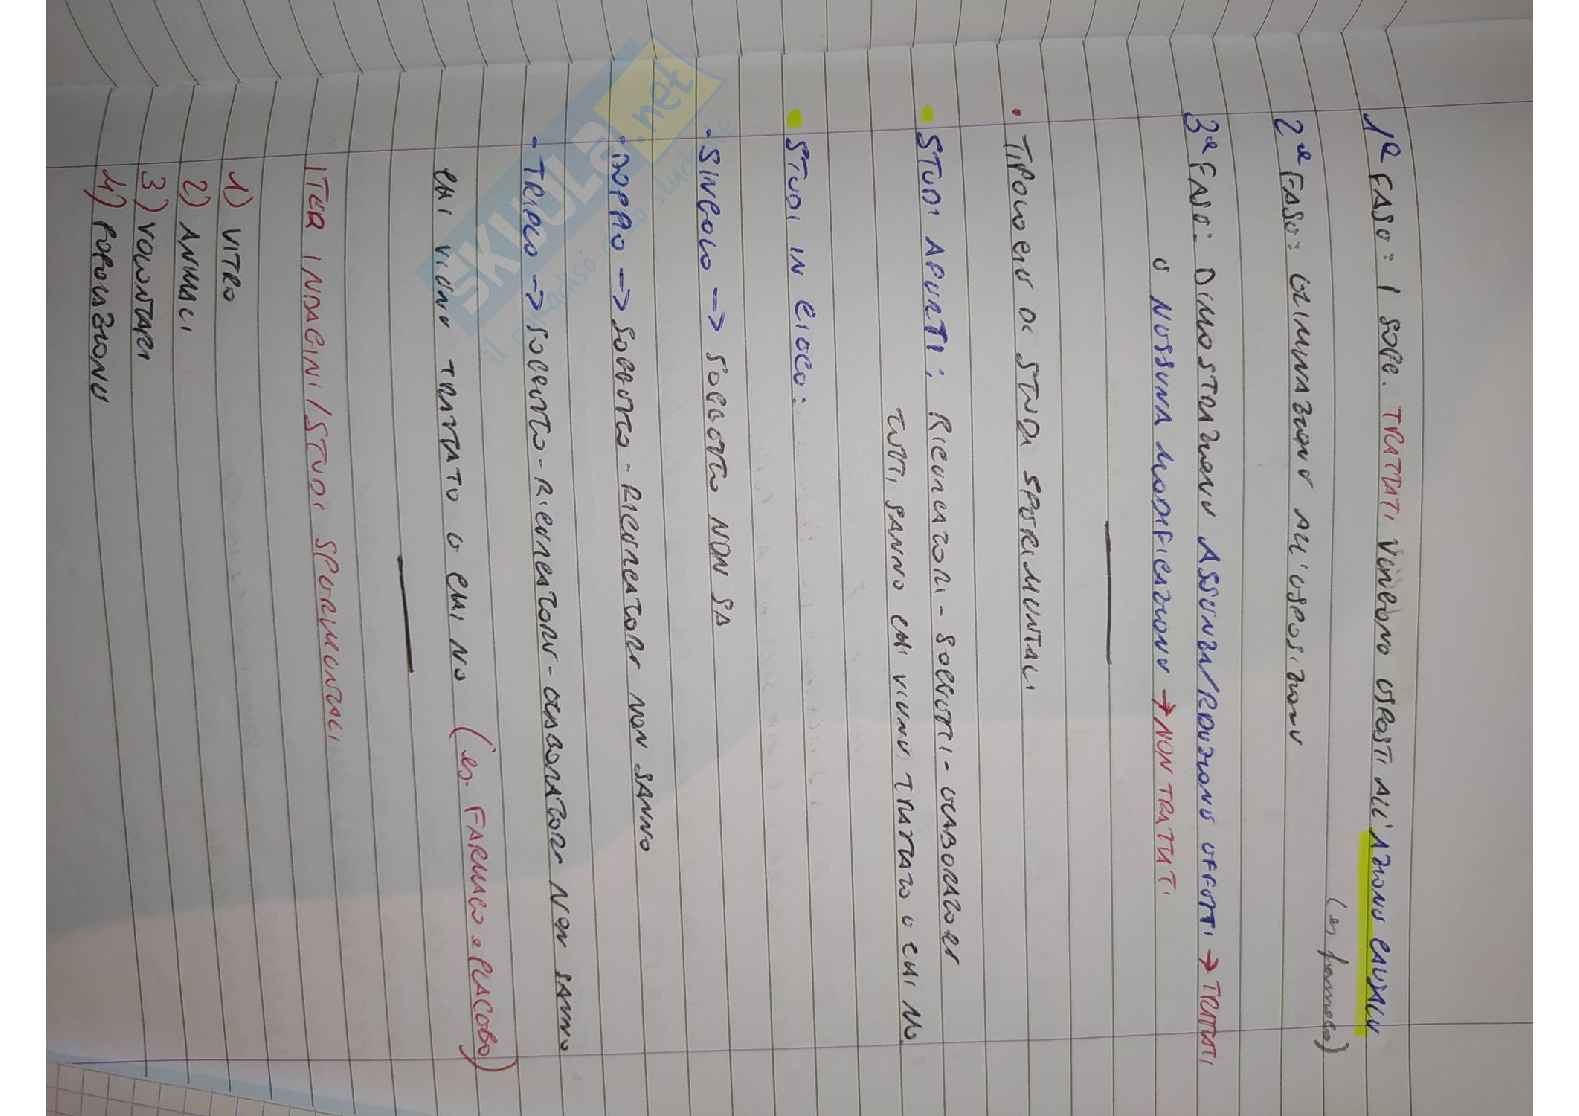 1ª FASE: I SOGG. TRATTATI VENGONO ESPOSTI ALL'AZIONE CAUSALE
(es farmaco)
2ª FASE: ELIMINAZIONE ALL'ESPOSIZIONE
3ª FASE: DIMOSTRAZIONE ASSENZA/RIDUZIONE EFFETTI → TRATTATI
O NESSUNA MODIFICAZIONE → NON TRATTATI
• TIPOLOGIE DI STUDI SPERIMENTALI
• STUDI APERTI: RICERCATORI - SOGGETTI - ELABORATORI
TUTTI SANNO CHI VIENE TRATTATO E CHI NO
• STUDI IN CIECO:
• SINGOLO → SOGGETTO NON SA
• DOPPIO → SOGGETTO - RICERCATORE NON SANNO
• TRIPLO → SOGGETTO - RICERCATORE - ELABORATORE NON SANNO
CHI VIENE TRATTATO E CHI NO (es. FARMACO e PLACEBO)
ITER INDAGINI/STUDI SPERIMENTALI
1) VITRO
2) ANIMALI
3) VOLONTARI
4) POPOLAZIONE
SKUOLA.net